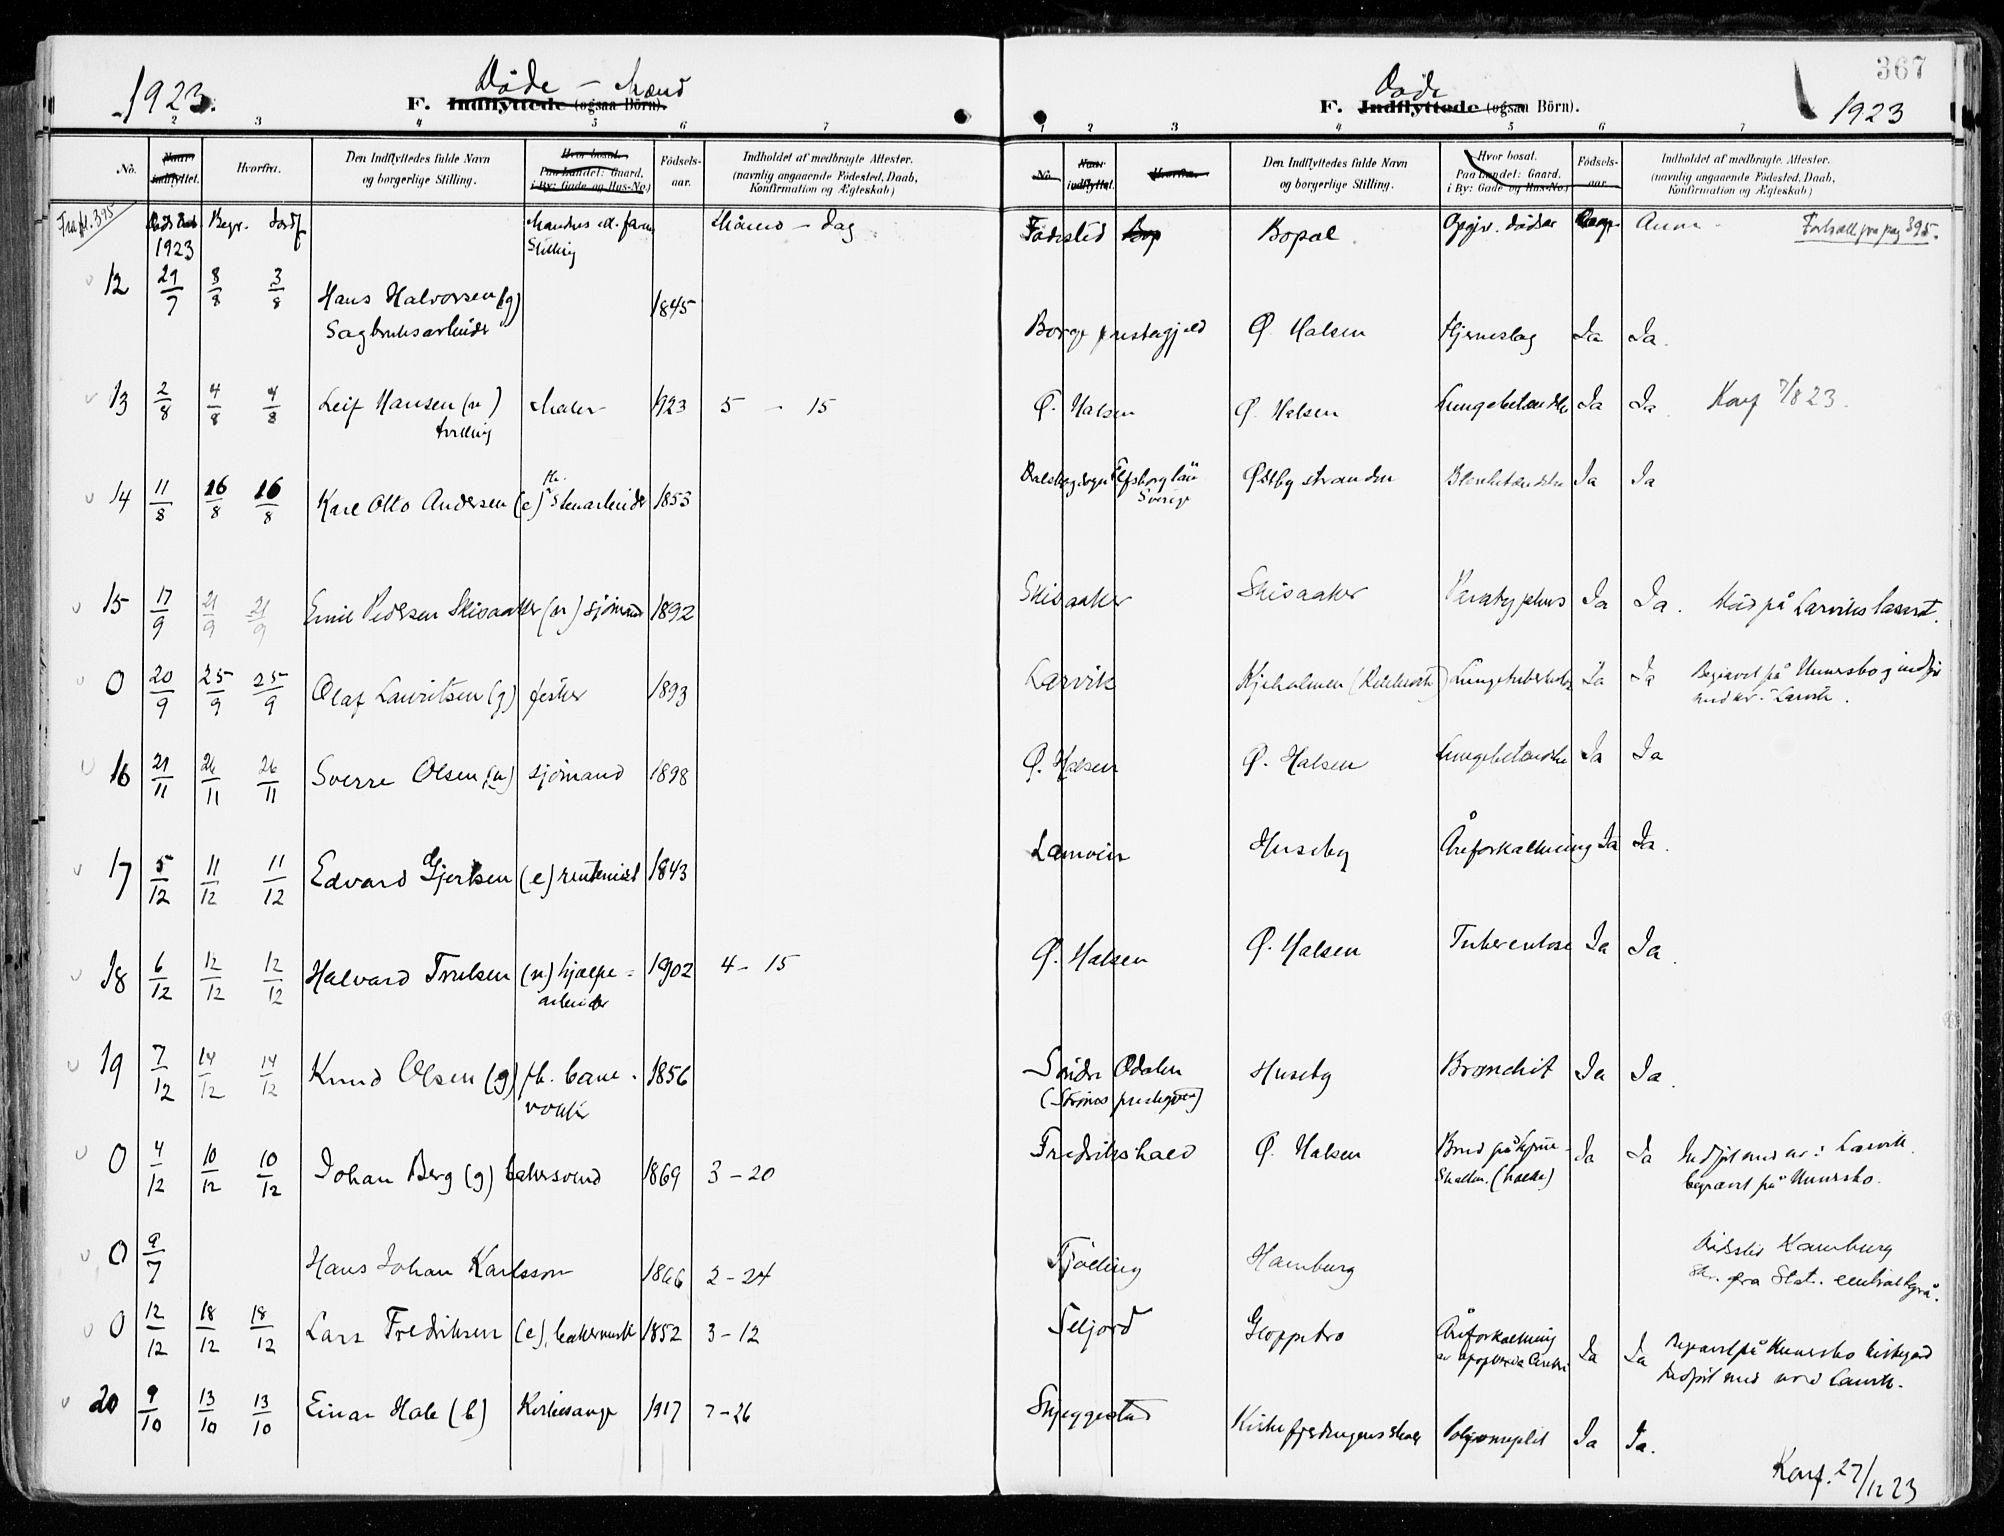 1923.
Døde – Mænd
F. Indflyttede (ogsaa Börn).
2 3 4 5 6 7
No. Naar indflyttet. Hvorfra. Den Indflyttedes fulde Navn og borgerlige Stilling. Hvor bosat. Paa Landet: Gaard. i By: Gade og Hus-No.) Födsels-aar. Indholdet af medbragte Attester. (navnlig angaaende Födested, Daab, Konfirmation og Ægteskab)
Fra pl. 395 1923 Begr. Jordf. Stilling Måned – Dag
12 29/7 3/8 3/8 Hans Halvorsen (g) 1845
Sagbruksarbeider
13 2/8 4/8 4/8 Leif Hansen (u) maler 1923 5 – 15
tvilling
14 11/8 16/8 16/8 Karl Otto Andersen (e) fh. Stenarbeider 1853
15 17/9 21/9 21/9 Emil Pedersen Skisaaker (u) sjömand 1892
0 20/9 25/9 25/9 Olaf Lauritsen (g) fisker 1893
16 21/11 26/11 26/11 Sverre Olsen (u) sjömand 1898
17 5/12 11/12 11/12 Edvard Gjertsen (e) rentenist 1843
18 6/12 12/12 12/12 Halvard Trulsen (u) hjælpe- 1902 4 – 15
arbeider
19 7/12 14/12 14/12 Knud Olsen (g) fh. bane- 1856
vokter
0 4/12 10/12 10/12 Johan Berg (g) bakersvend 1869 3 – 20
0 9/7 Hans Johan Karlsson 1866 2 – 24
0 12/12 18/12 18/12 Lars Fredriksen (e), bakermester 1852 3 – 12
20 9/10 13/10 13/10 Einar Hole (b) Kirkesanger 1917 7 – 26
367
Døde
F. Indflyttede (ogsaa Börn).
1923
1 2 3 4 5 6 7
No. Naar indflyttet. Hvorfra. Den Indflyttedes fulde Navn og borgerlige Stilling. Hvor bosat. Paa Landet: Gaard. i By: Gade og Hus-No.) Födsels-aar. Indholdet af medbragte Attester. (navnlig angaaende Födested, Daab, Konfirmation og Ægteskab)
Fødested Bop Bopæl Opgiv. dødsår Anm. Fortsatt fra pag 395.
Borge prestegjeld Ø. Halsen Hjerneslag Ja Ja.
Ø. Halsen Ø. Halsen Lungebetændelse Ja Ja. Konf 7/8 23.
Elfsborg län Sverige Østbystranden Blærebetændelse Ja Ja
Skisaaker Skisaaker Paratyphus Ja Ja. Död på Larviks lasaret.
Larvik Kjeholmen Lungetuberkulose Ja Ja Begravet på Undersbo og indført
nedover i Larvik.
Ø. Halsen Ø. Halsen Lungebetændelse Ja Ja
Lamøen Huseby Åreforkalkning Ja Ja.
Ø. Halsen Ø. Halsen Tuberculose Ja Ja.
Söndre Odalen Huseby Bronchit Ja Ja.
(Strømos prestegjeld)
Fredrikshald Ø. Halsen Brud på hjerne- Ja Ja Indført med nr. i Larvik.
skallen. begravet på Undersbo.
Tjølling Hamburg Dødssted Hamburg
Skr. fra Stat. centralbyrå.
Seljord Gloppebro Åreforkalkning Ja Ja Begravet på Undersbo kirkegård
Indført med nr. ved Larvik.
Skjeggestad Kirkefjerdingens skole Poliomyelit Ja Ja.
Konf. 27/12 23